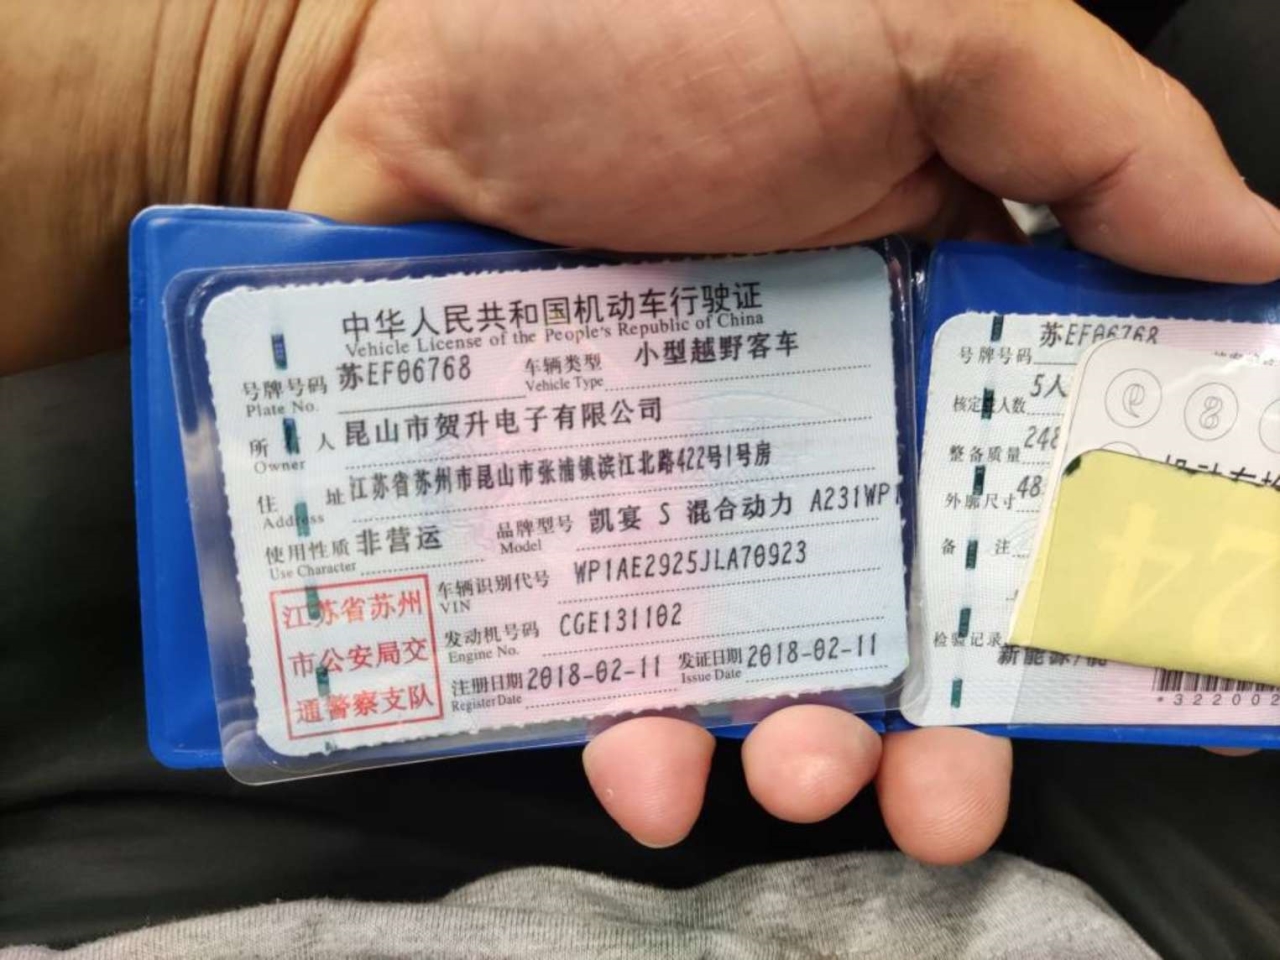 中华人民共和国机动车行驶证
Vehicle License of the People's Republic of China
号牌号码 苏EF06768 车辆类型 小型越野客车
Plate No. Vehicle Type
所有人 昆山市贺升电子有限公司
Owner
住址 江苏省苏州市昆山市张浦镇滨江北路422号1号房
Address
使用性质 非营运 品牌型号 凯宴 S 混合动力 A231WP1
Use Character Model
车辆识别代号 WP1AE2925JLA70923
VIN
发动机号码 CGE131102
Engine No.
注册日期 2018-02-11 发证日期 2018-02-11
Register Date Issue Date
江苏省苏州
市公安局交
通警察支队
号牌号码 苏EF06768
核定载人数 5人
整备质量 248
外廓尺寸 48
备注
检验记录
新能源
*322002
24